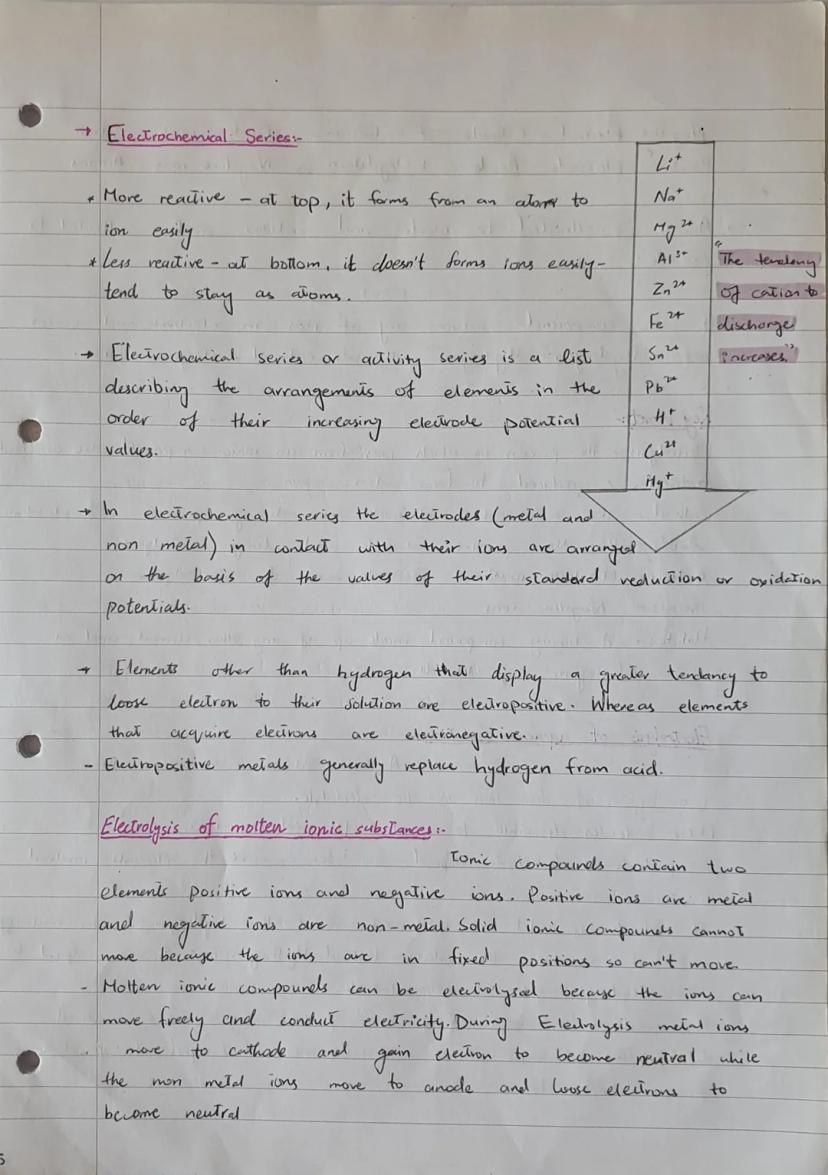 → Electrochemical Series:-
* More reactive - at top, it forms from an atom to
ion easily
* Less reactive - at bottom, it doesn't forms ions easily-
tend to stay as atoms.
→ Electrochemical series or activity series is a list
describing the arrangements of elements in the
order of their increasing electrode potential
values.
Li⁺
Na⁺
Mg²⁺
Al³⁺
Zn²⁺
Fe²⁺
Sn²⁺
Pb²⁺
H⁺
Cu²⁺
Hg⁺
"The tendency
of cation to
discharge
increases"
→ In electrochemical series the electrodes (metal and
non metal) in contact with their ions are arranged
on the basis of the values of their standard reduction or oxidation
potentials.
→ Elements other than hydrogen that display a greater tendancy to
loose electron to their solution are electropositive. Whereas elements
that acquire electrons are electronegative.
- Electropositive metals generally replace hydrogen from acid.
Electrolysis of molten ionic substances:-
Ionic compounds contain two
elements positive ions and negative ions. Positive ions are metal
and negative ions are non-metal. Solid ionic compounds cannot
move because the ions are in fixed positions so can't move.
- Molten ionic compounds can be electrolysed because the ions can
move freely and conduct electricity. During Electrolysis metal ions
move to cathode and gain electron to become neutral while
the non metal ions move to anode and loose electrons to
become neutral
5